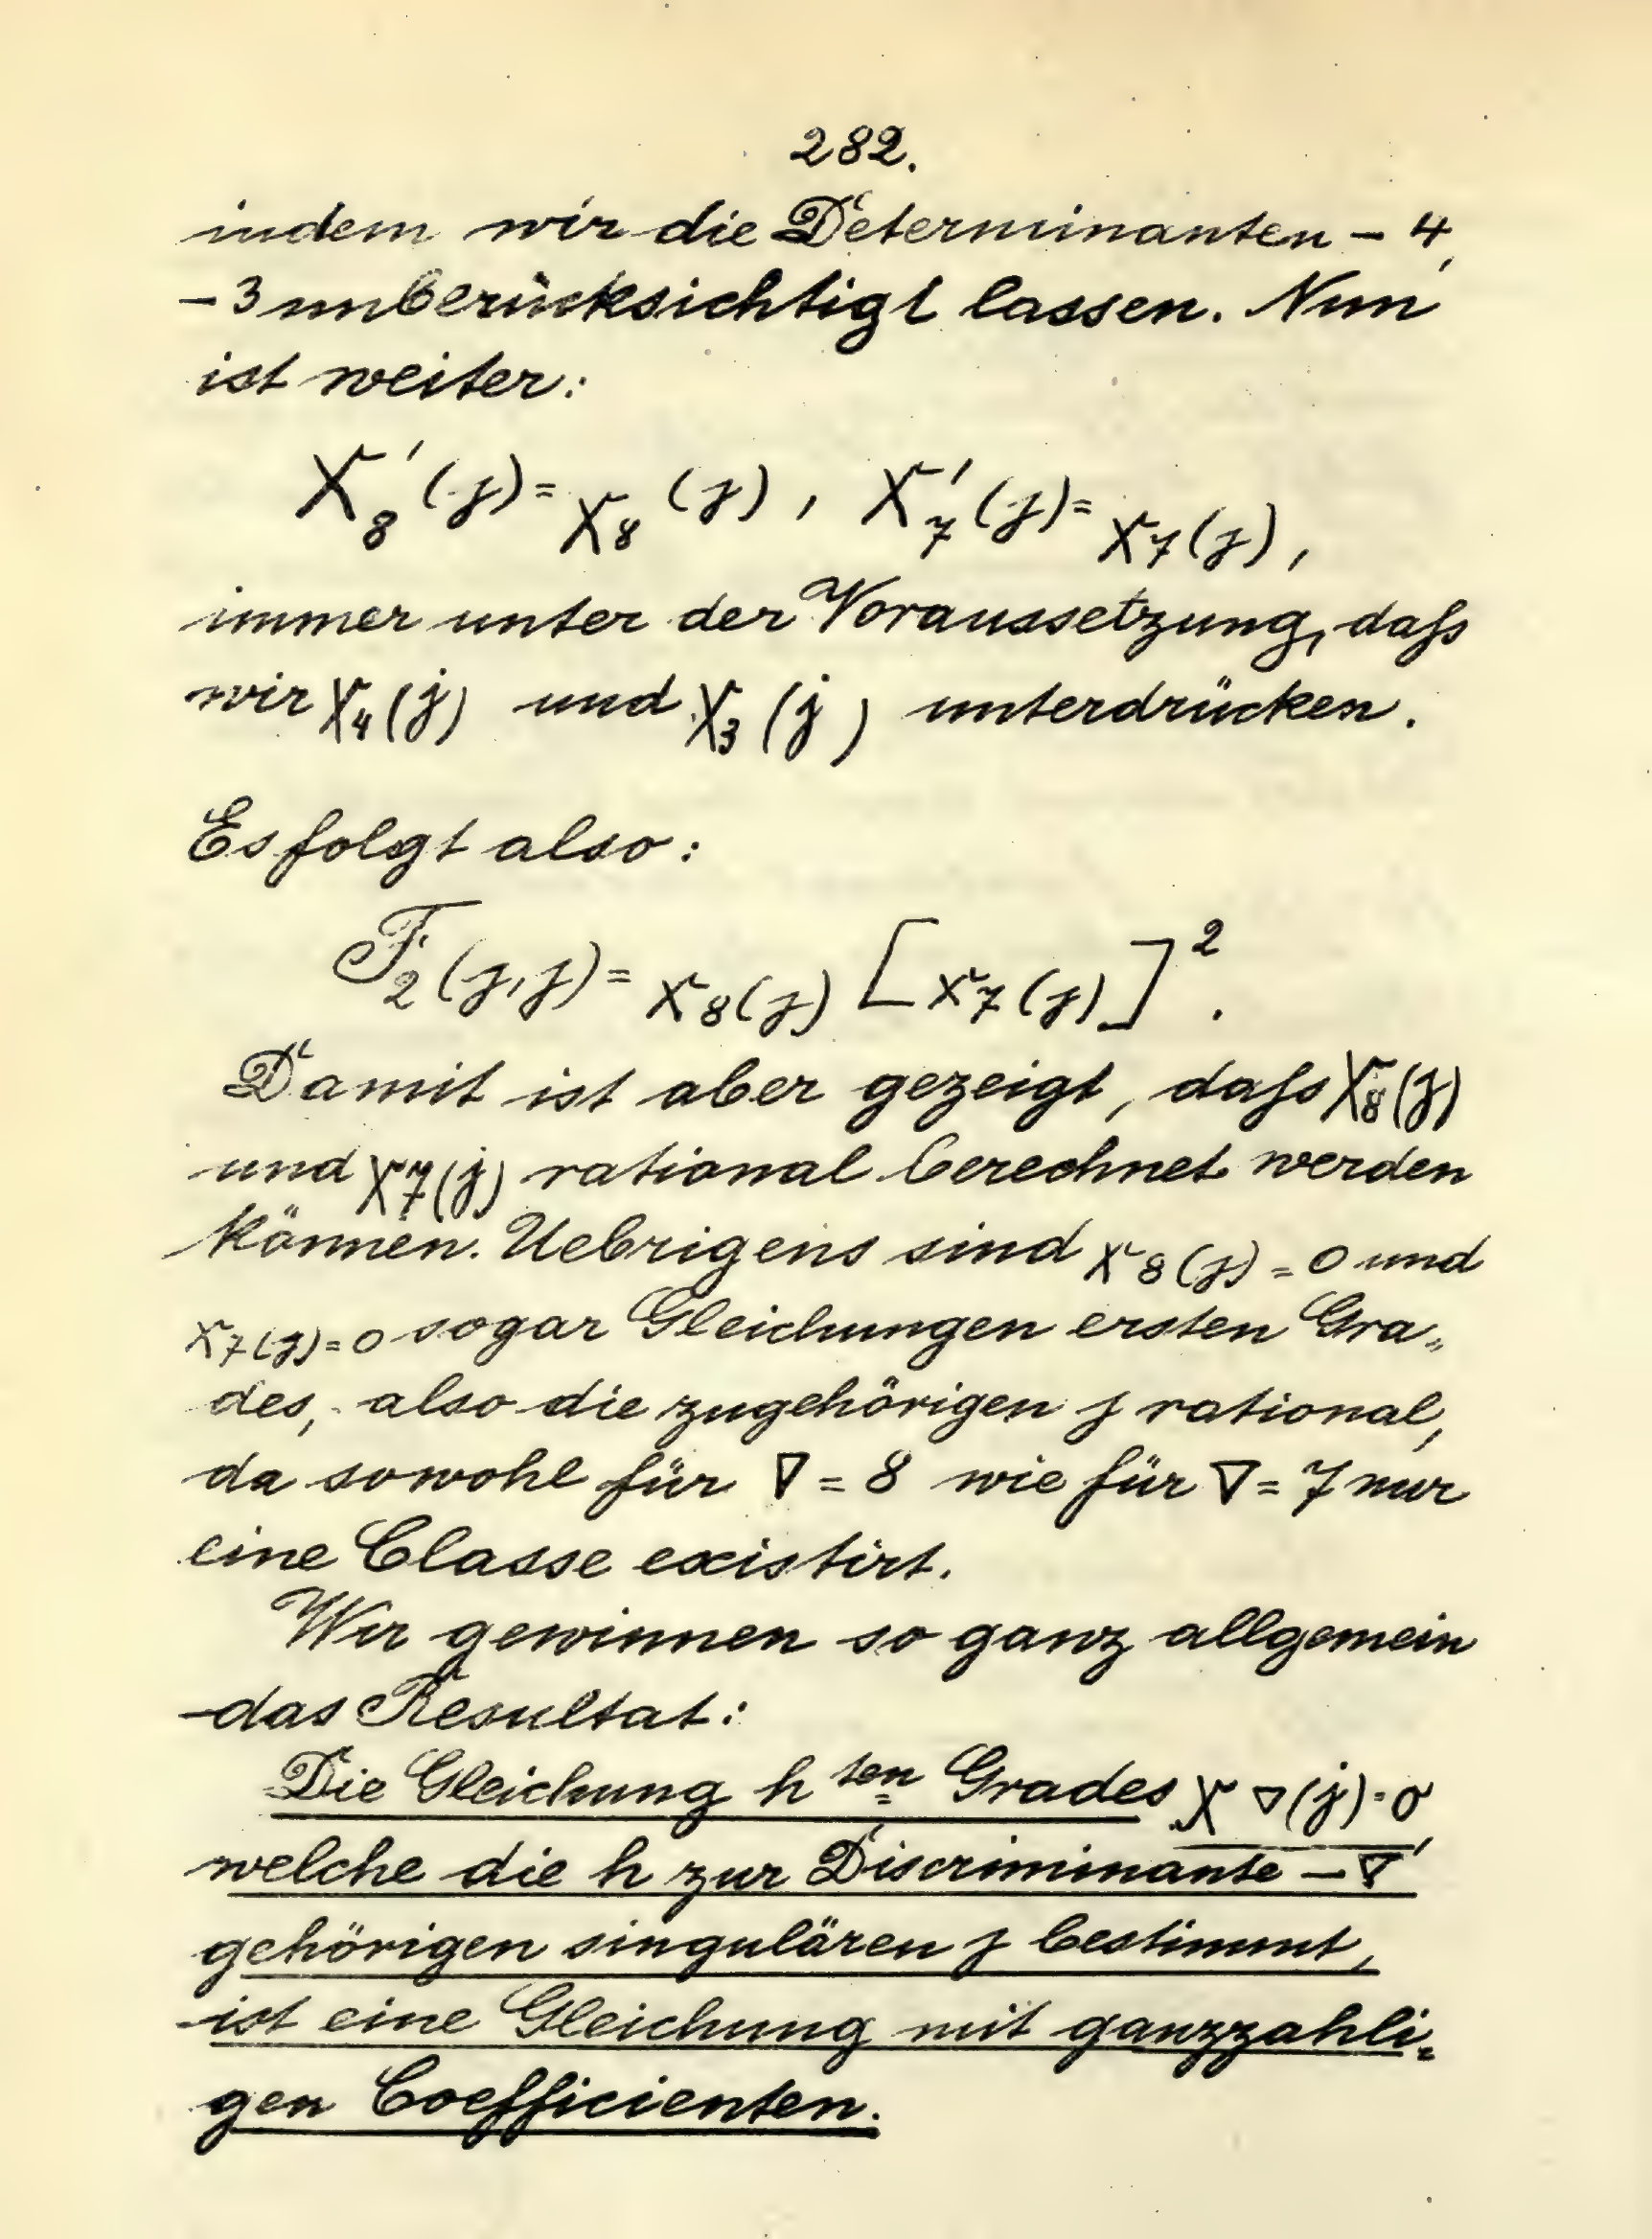 282.
indem wir die Determinanten - 4,
- 3 unberücksichtigt lassen. Nun
ist weiter:
X₈'(j) = X₈(j), X₇'(j) = X₇(j),
immer unter der Voraussetzung, daſs
wir X₄(j) und X₃(j) unterdrücken.
Es folgt also:
F₂(j,j) = X₈(j) [X₇(j)]².
Damit ist aber gezeigt, daſs X₈(j)
und X₇(j) rational berechnet werden
können. Uebrigens sind X₈(j) = 0 und
X₇(j) = 0 sogar Gleichungen ersten Gra„
des, also die zugehörigen j rational,
da sowohl für ∇ = 8 wie für ∇ = 7 nur
eine Classe existirt.
Wir gewinnen so ganz allgemein
das Resultat:
Die Gleichung h ten Grades X ∇(j) = 0,
welche die h zur Discriminante - ∇
gehörigen singulären j bestimmt,
ist eine Gleichung mit ganzzahli=
gen Coefficienten.